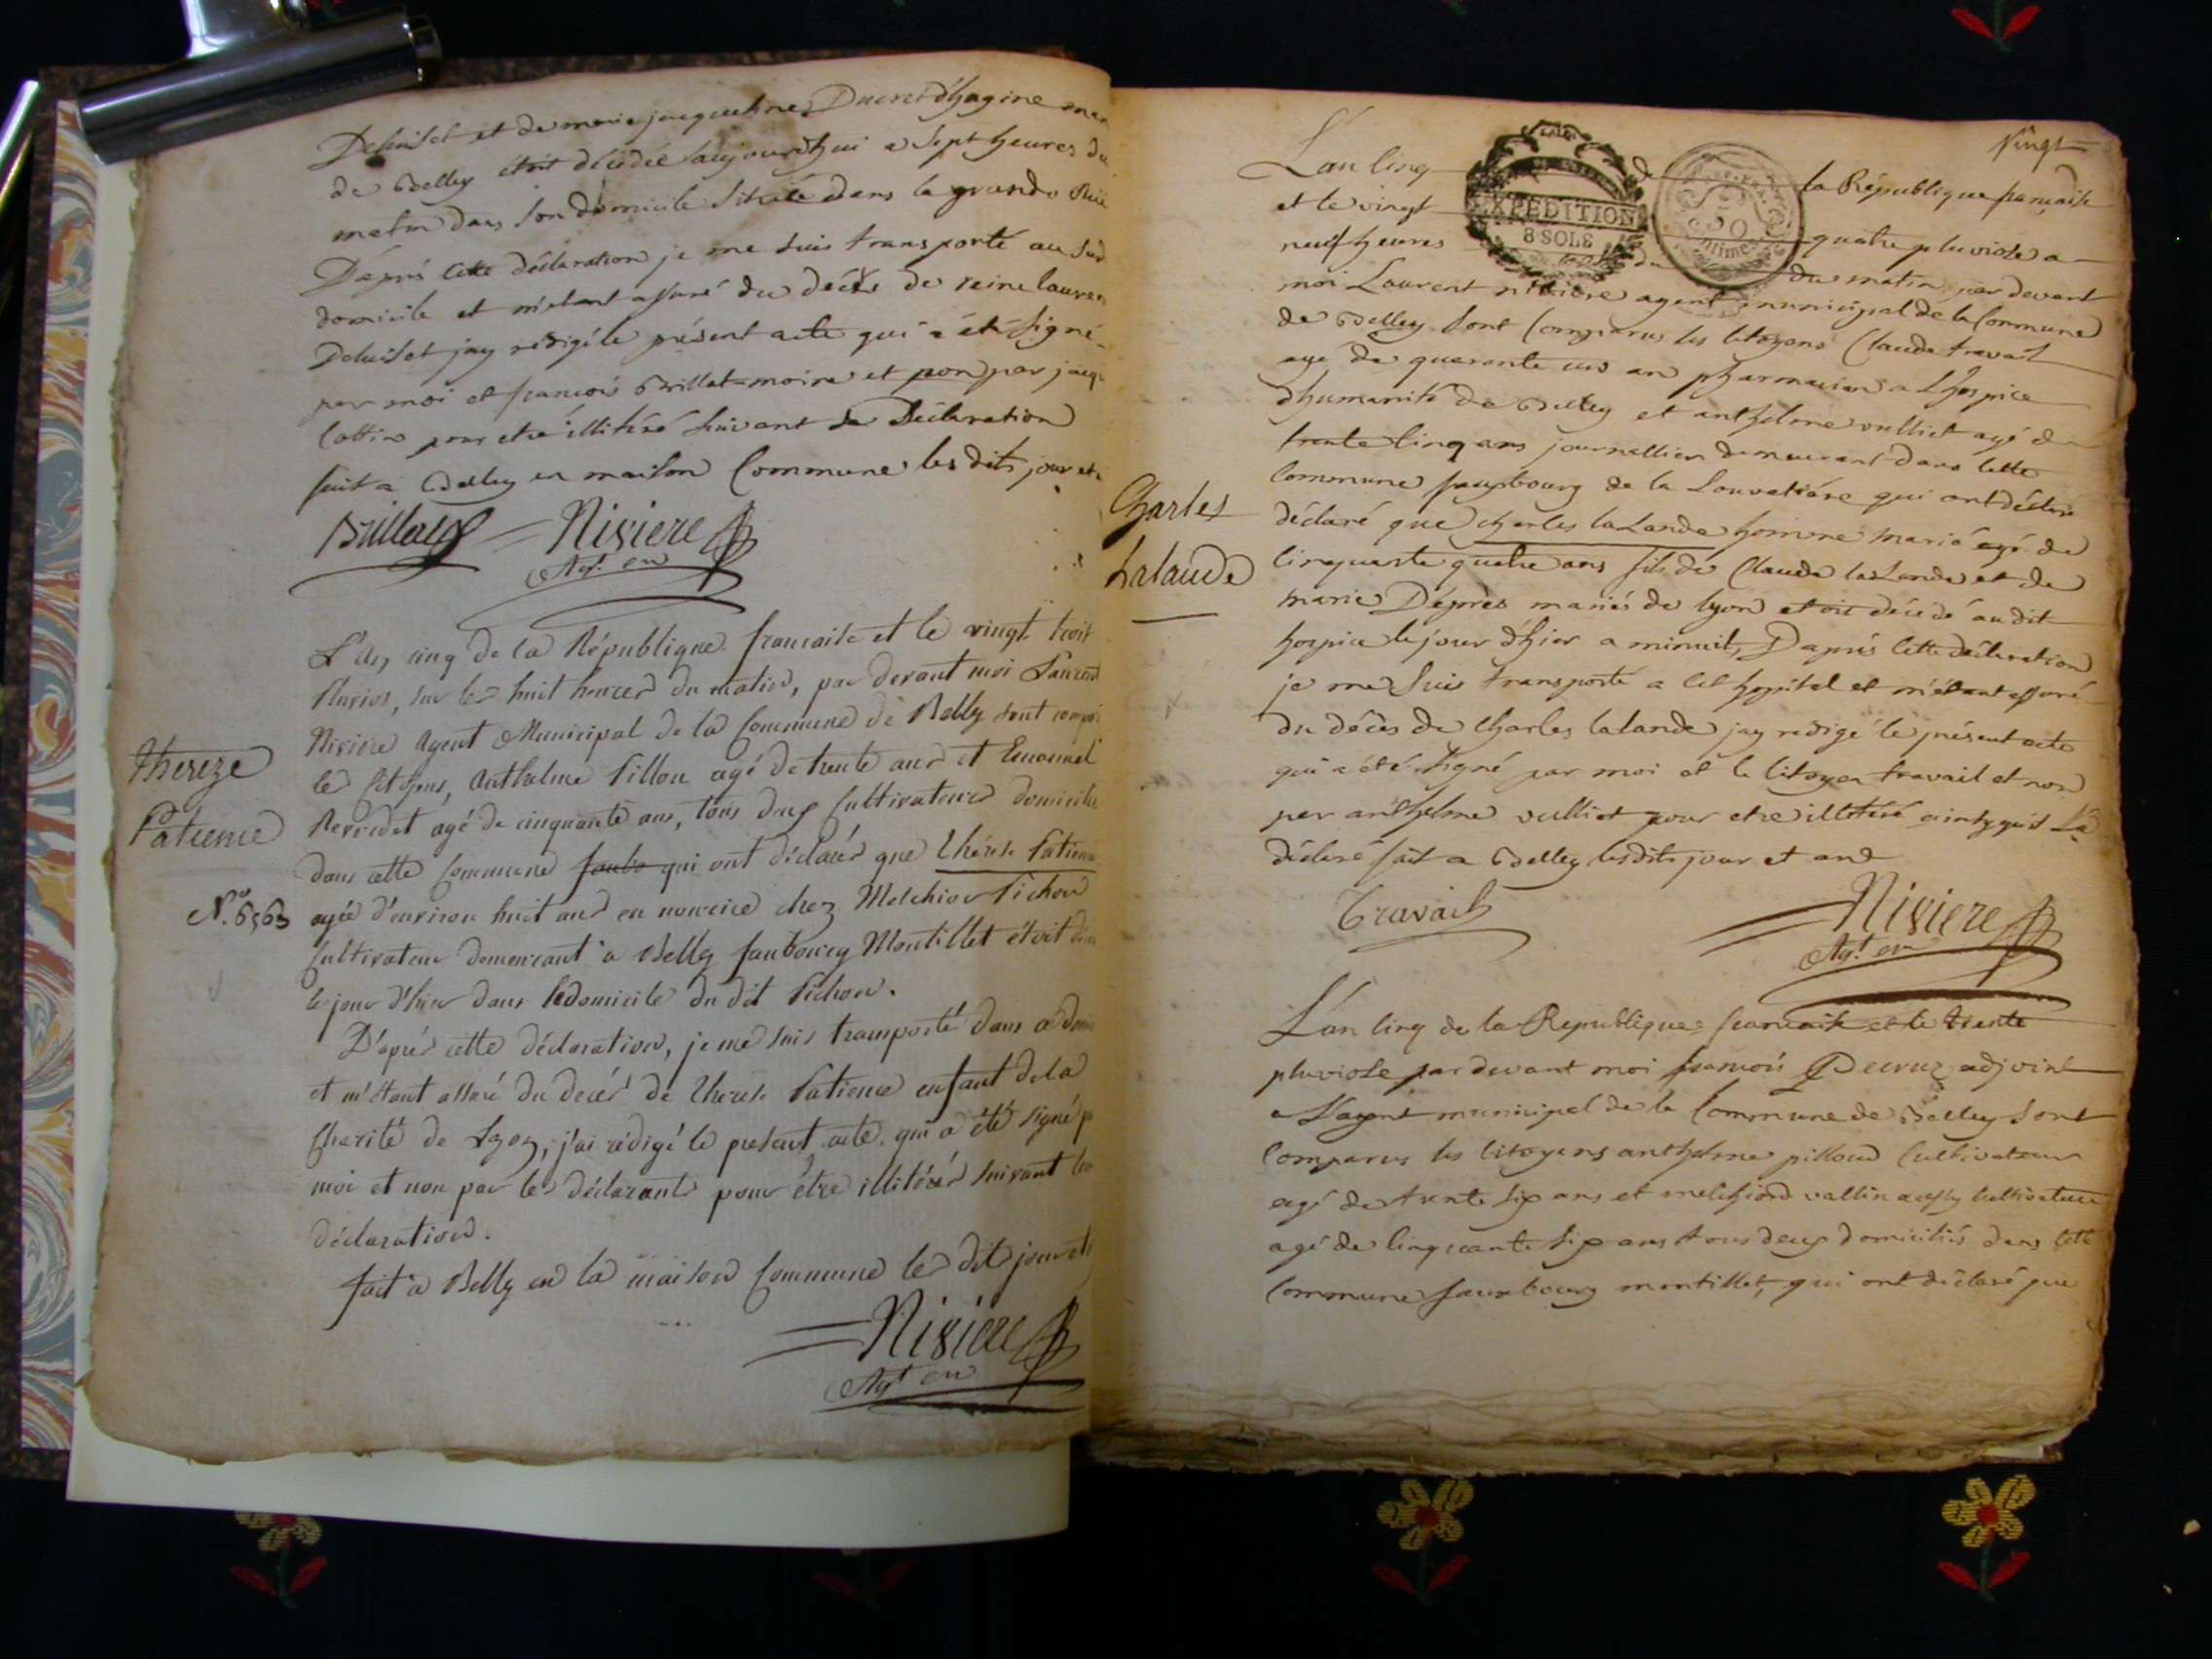 Deluiset et de marie jacqueline Ducret d'hagine
de Belley était décédée aujourdhui a sept heures du
matin dans son domicile situé dans la grande Ruë
D'après cette déclaration je me suis transporté au sud
domicile et m'étant assuré du décès de reine
Deluiset jay rédigé le présent acte qui a été signé
par moi et francois Brillat-moine et non par
Cottin pour etre illitéré suivant sa Déclaration
fait a Belley en maison Commune les dits jour et
Brillat Rivière
Agt. en
L'An cinq de la République francaise et le vingt trois
Pluvios, sur les huit heures du matin, par devant moi Laurent
Rivière Agent Municipal de la Commune de Belley sont
les Citoyens, Anthelme Pillou agé de trente ans et Emanuel
agé de cinquante ans, tous deux Cultivateurs
dans cette Commune qui ont déclarés que Thérèse Patience
Thereze
Patience
N.° 6563
agée d'environ huit ans en nourrice chez Melchior Pichou
Cultivateur demeurant a Belley faubourg Montillet étoit
le jour d'hier dans le domicile du dit Pichou.
D'après cette déclaration, je me suis transporté dans ce
et m'étant assuré du décès de Thérèse Patience enfant de la
Charité de Lyon, j'ai rédigé le présent acte qui a été signé
moi et non par les déclarants pour être illitérés suivant
déclaration.
fait à Belley en la maison Commune les dits jour et
Rivière
Agt en
Vingt
L'an cinq de la République francaise
et le vingt quatre pluviose a
neuf heures du matin par devant
EXPEDITION
8 SOLS
50
Centimes
moi Laurent rivière agent municipal de la Commune
de Belley sont Comparus les Citoyens Claude travail
agé de quarante un an pharmacien a L'hospice
d'humanité de Belley et anthelme vulliet agé de
trente Cinq ans journallier demeurant dans cette
Commune fauxbourg de la Louvatière qui ont
déclaré que charles laLande homme marié agé de
Charles
Lalande
Cinquante quatre ans fils de Claude laLande et de
marie Déprès mariés de lyon etoit décédé audit
hospice le jour d'hier a minuit, D'après Cette déclaration
je me suis transporté a Cet hopital et m'étant assuré
du décès de Charles lalande jay redigé le présent acte
qui a été signé par moi et le Citoyen travail et non
par anthelme vulliet pour etre illitéré ainsy qu'il La
déclaré fait a Belley lesdits jour et an
Travail
Rivière
Agt. en
L'an Cinq de la Republique francaise et le trente
pluviose par devant moi francois Decruz adjoint
a L'agent municipal de la Commune de Belley sont
Comparus les Citoyens anthelme pilloud Cultivateur
agé de trente six ans et melchiord vallin aussy Cultivateur
agé de Cinquante six ans tous deux domiciliés dans Cette
Commune fauxbourg montillet, qui ont déclaré que